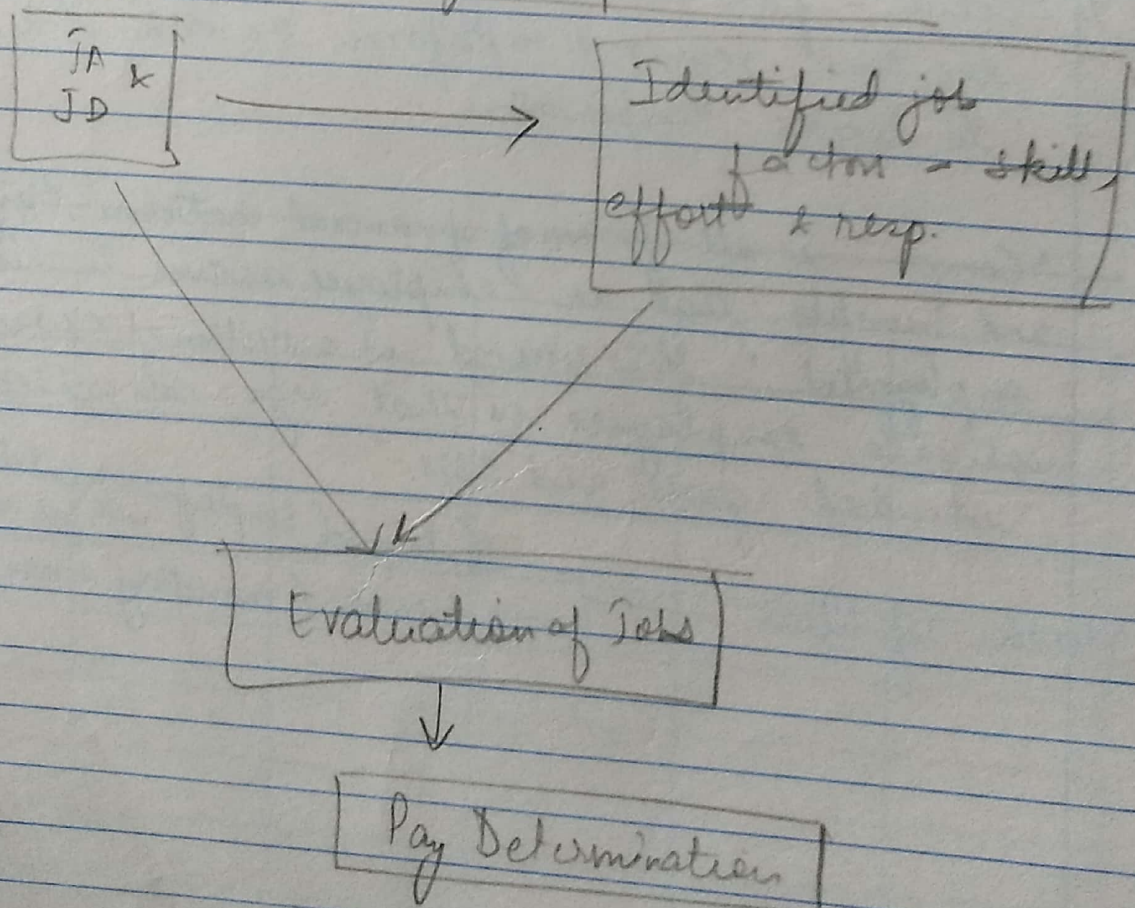 JA &
JD
Identified job
factors - skill,
effort & resp.
Evaluation of Jobs
Pay Determination